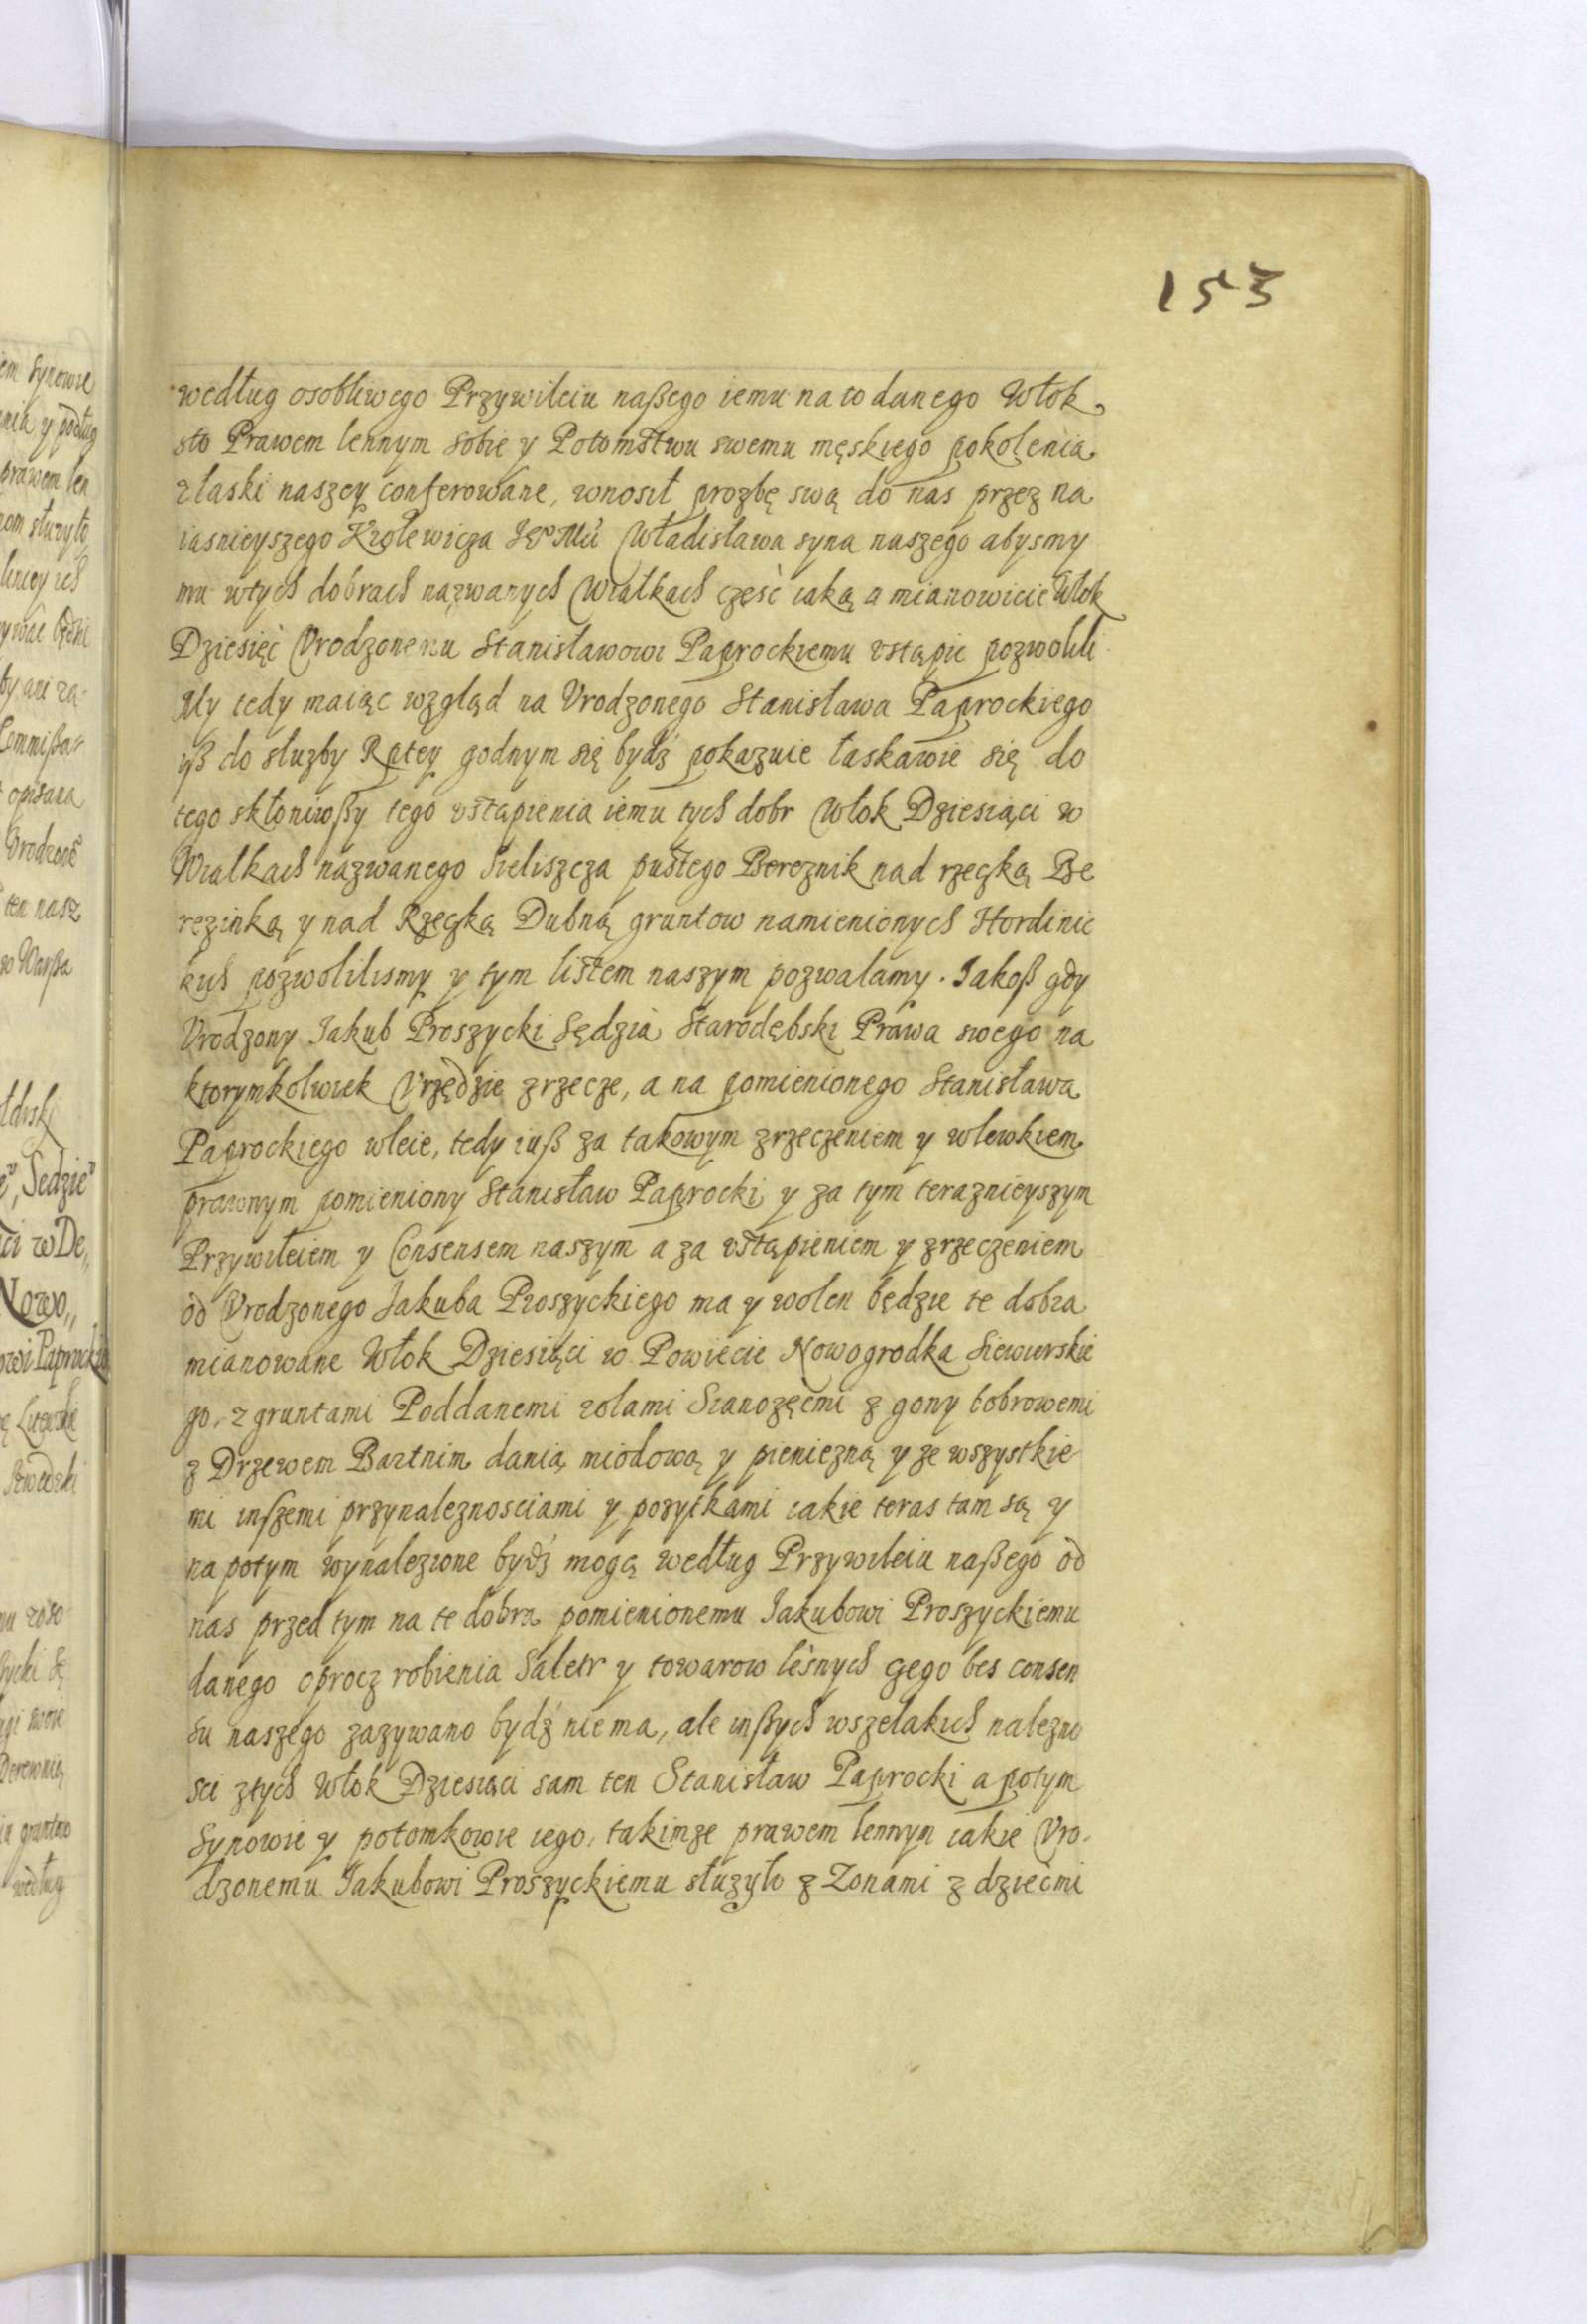 153
według osobliwego Przywileiu naßego iemu na to danego Włok
sto Prawem lennym sobie y Potomstwu swemu męskiego pokolenia
z łaski naszey conferowane, wnosił prozbę swą do nas przez na
iasnieyszego Krolewicza Władisława syna naszego abysmy
mu wtych dobrach nazwanych Wialkach częsć iaką a mianowicie Włok
Dziesięć Vrodzonemu Stanisławowi Paprockiemu vstąpic pozwolili
My tedy maiąc wzgląd na Vrodzonego Stanisława Paprockiego
yß do słuzby Rptey godnym się bydź pokazuie łaskawie się do
tego skłoniwßy tego vstąpienia iemu tych dobr Włok Dziesiąci w
Wialkach nazwanego Sieliszcza pustego Bereznik nad rzeczką Be
rezinką y nad Rzeczką Dubną gruntow namienionych Hordinic
kich pozwolilismy y tym listem naszym pozwalamy. Jakoß gdy
Vrodzony Jakub Proszycki Sędzia Starodębski Prawa swego na
ktorymkolwiek Vrzędzie zrzecze, a na pomienionego Stanisława
Paprockiego wleie, tedy iuß za takowym zrzeczeniem y wlewkiem
prawnym pomieniony Stanisław Paprocki y za tym teraznieyszym
Przywileiem y Consensem naszym a za vstąpieniem y zrzeczeniem
od Vrodzonego Jakuba Proszyckiego ma y wolen będzie te dobra
mianowane Włok Dziesiąci w Powiecie Nowogrodka Siewierskie
go, z gruntami Poddanemi rolami Sianozęćmi z gony bobrowemi
z Drzewem Bartnim danią miodową y pieniezną y ze wszystkie
mi inszemi przynaleznosciami y pozytkami iakie teras tam są y
na potym wynalezione bydź mogą według Przywileiu naßego od
nas przed tym na te dobra pomienionemu Jakubowi Proszyckiemu
danego oprocz robienia Saletr y towarow leśnych czego bes consen
su naszego zazywano bydź niema, ale inßych wszelakich nalezno
sci ztych Włok Dziesiąci sam ten Stanisław Paprocki a potym
Synowie y potomkowie iego, takimze prawem lennym iakie Vro-
dzonemu Jakubowi Proszyckiemu słuzyło z Zonami z dziećmi